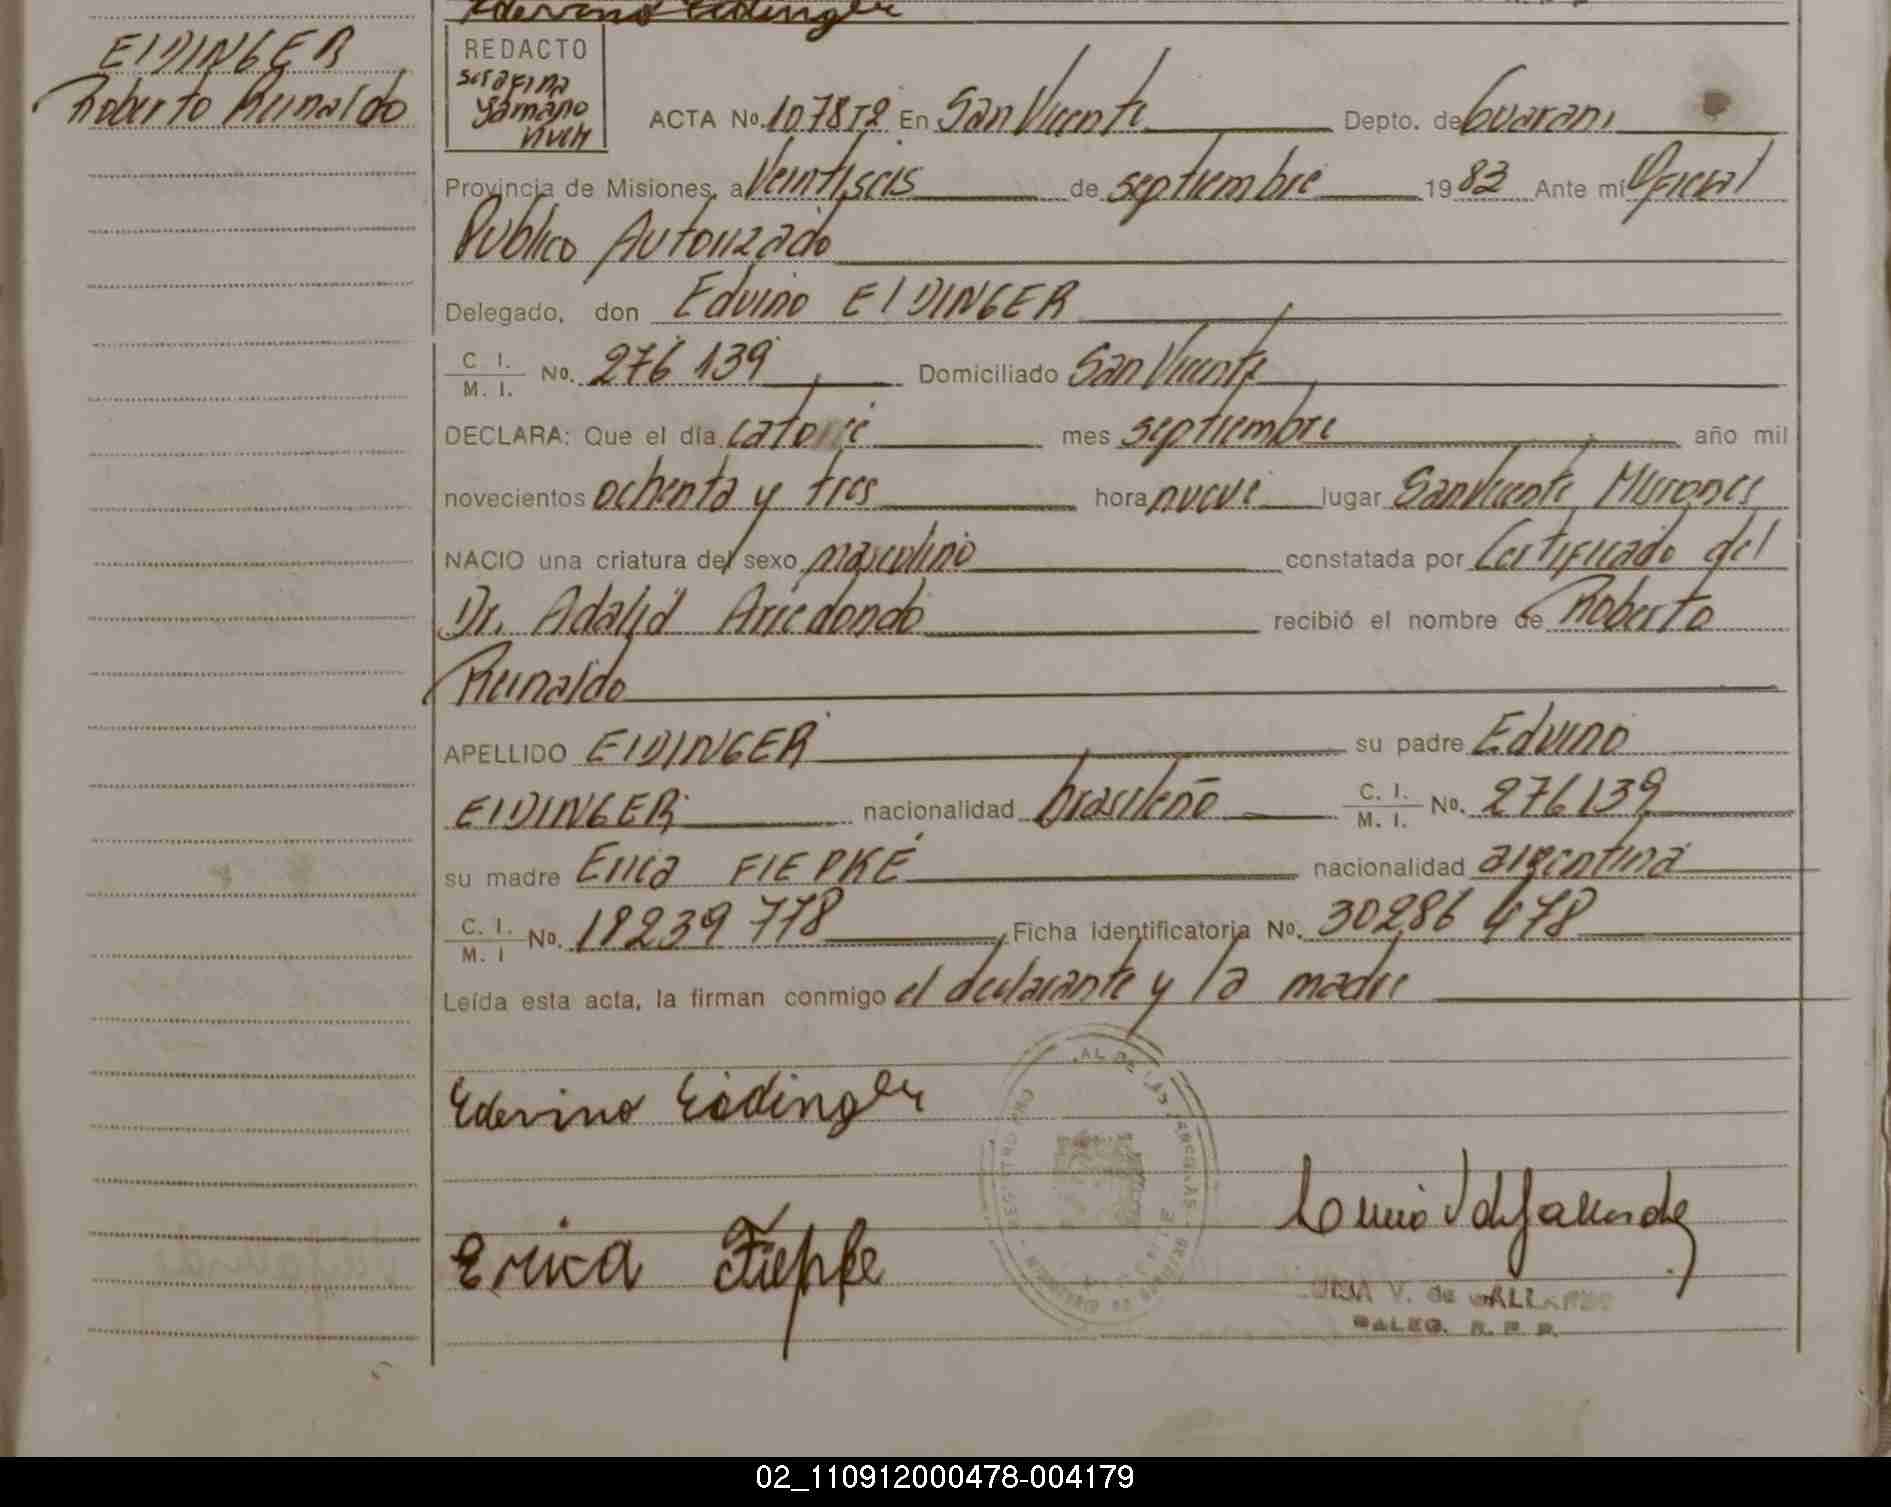 Edervino Eidinger
EIDINGER
Roberto Reinaldo
REDACTO
Serafina
Gamano
ACTA No. 1078 T2 En San Vicente Depto. de Guarani
Provincia de Misiones, a Veintiseis de septiembre 1983 Ante mí Oficial
Publico Autorizado
Delegado, don Eduino EIDINGER
C. I. / M. I. No. 276 139 Domiciliado San Vicente
DECLARA: Que el día catorce mes septiembre año mil
novecientos ochenta y tres hora nueve lugar San Vicente Misiones
NACIO una criatura del sexo masculino constatada por Certificado del
Dr. Adalid Arredondo recibió el nombre de Roberto
Reinaldo
APELLIDO EIDINGER su padre Eduino
EIDINGER nacionalidad brasileño C. I. / M. I. No. 276139
su madre Erica FIEPKE nacionalidad argentina
C. I. / M. I No. 18239 778 Ficha Identificatoria No. 30286 478
Leída esta acta, la firman conmigo el declarante y la madre
Edervino Eidinger
Erica Fiepke
V. de GALLARDO
DELEG. R. P. P.
02_110912000478-004179